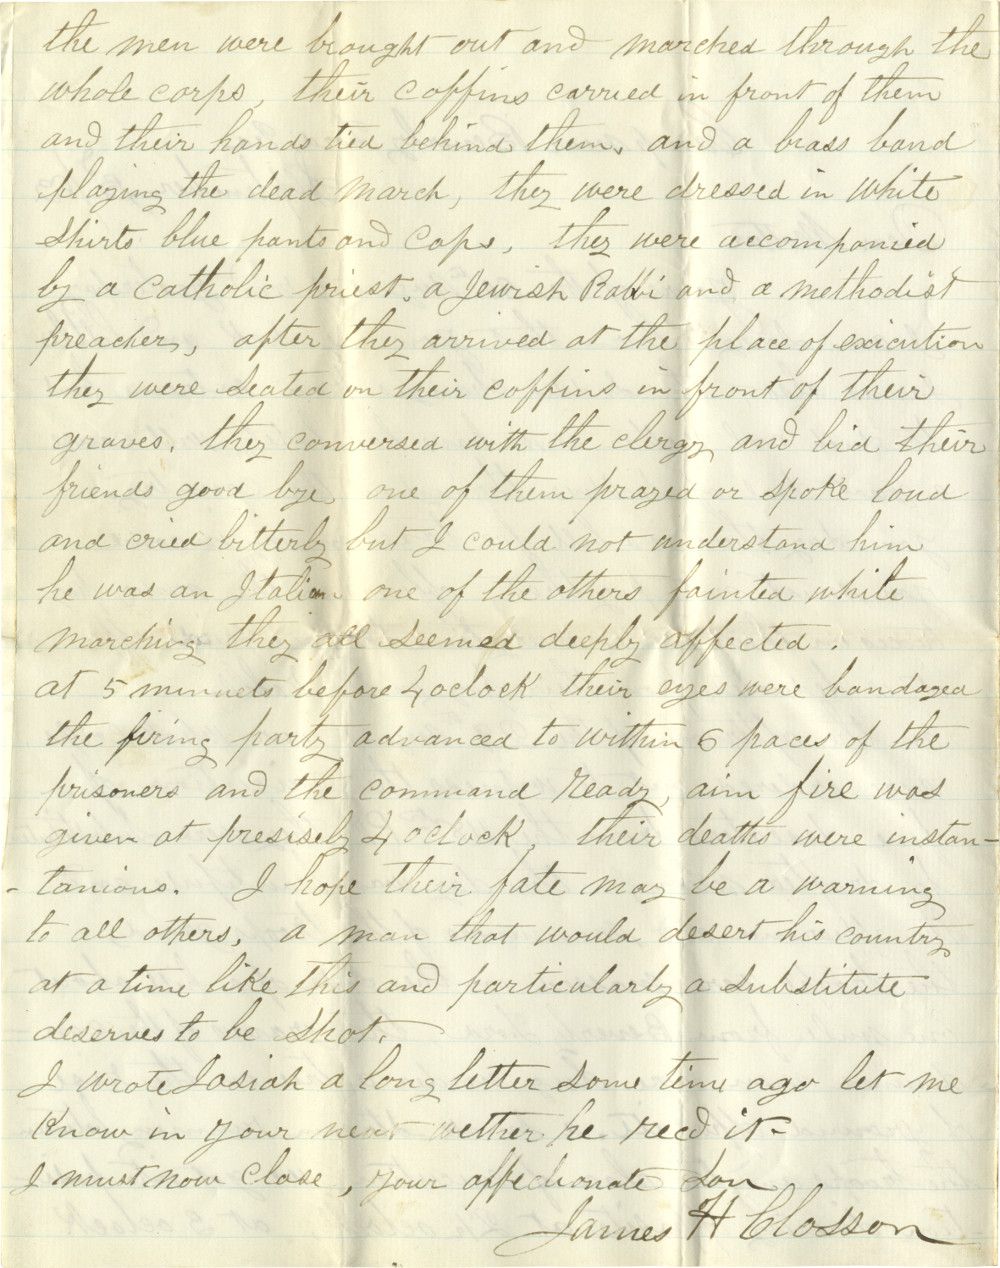 the men were brought out and marched through the
whole corps, their coffins carried in front of them
and their hands tied behind them, and a brass band
playing the dead march, they were dressed in white
shirts blue pants and caps, they were accompanied
by a Catholic priest, a Jewish Rabbi and a methodist
preacher, after they arrived at the place of exicution
they were seated on their coffins in front of their
graves. they conversed with the clergy and bid their
friends good bye one of them prayed or spoke loud
and cried bitterly but I could not understand him
he was an Italian one of the others fainted while
marching they all seemed deeply affected.
at 5 minuets before 4 oclock their eyes were bandaged
the firing party advanced to within 6 paces of the
prisoners and the command ready, aim fire was
given at presisely 4 oclock, their deaths were instan-
-tanious. I hope their fate may be a warning
to all others, a man that would desert his country
at a time like this and particularly a substitute
deserves to be shot.
I wrote Josiah a long letter some time ago let me
know in your next wether he recd it-
I must now close, your affectionate son
James H Closson